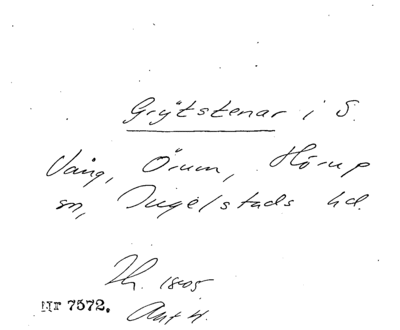 Grytstenar i S.
Vång, Örum, Hörup
sn, Ingelstads hd.
Th. 1805
Nr 7572.
Akt 4.